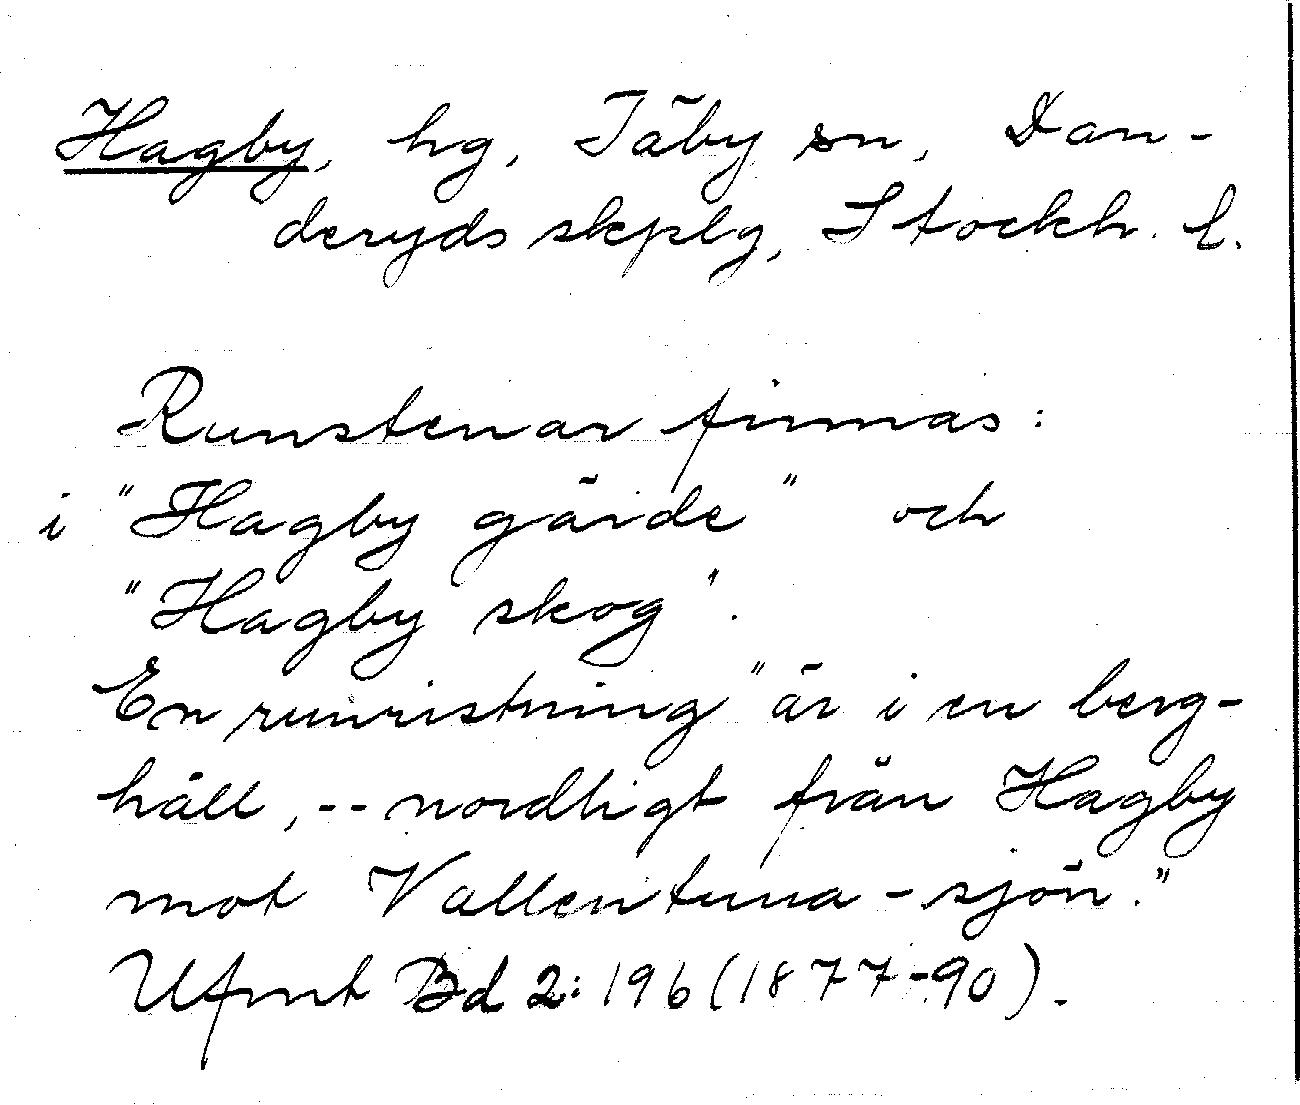 Hagby, hg, Täby sn, Dan-
deryds skplg, Stockh. l.
Runstenar finnas:
i "Hagby gärde" och
"Hagby skog".
En runristning "är i en berg-
häll, -- nordligt från Hagby
mot Vallentuna-sjön."
Ufmt Bd 2: 196 (1877-90).